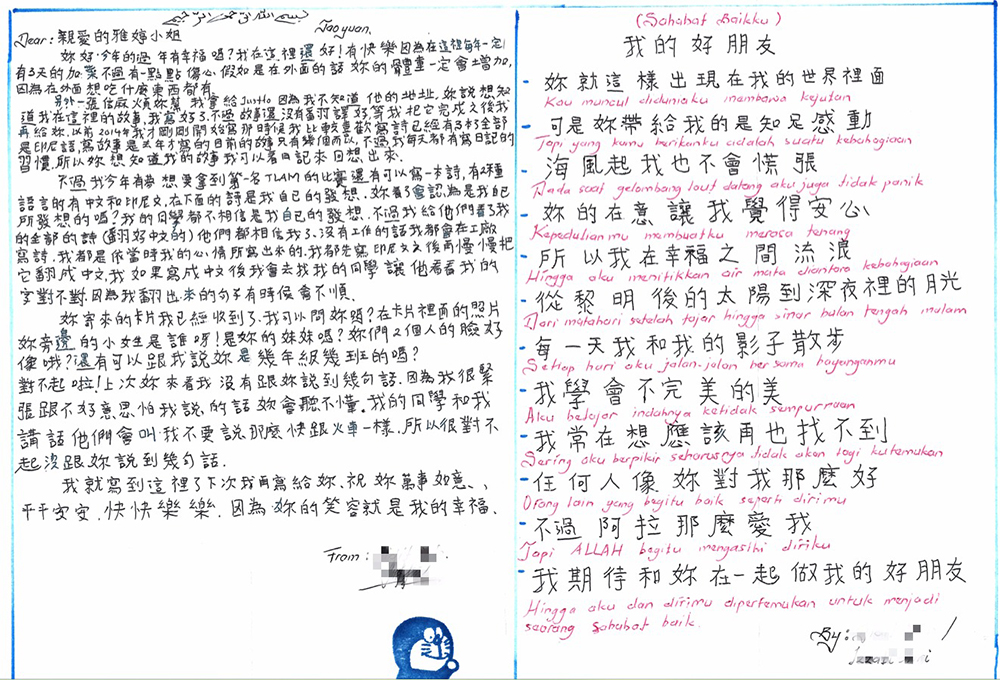 Taoyuan,
Dear: 親愛的雅婷小姐
妳好今年的過年有幸福嗎?我在這裡還好!有快樂因為在這裡每年一定
有3天的加菜不過有一點點傷心假如是在外面的話妳的體重一定會土增加,
因為在外面想吃什麼東西都有.
另外一張信麻煩妳幫我寄給Justto因為我不知道他的地址,妳說想知
道我在這裡的故事,我寫好了.不過故事還沒有翻譯好等我把它完成之後我
再給妳.以前2014年我才剛剛開始寫那時候我比較喜歡寫詩已經有3本全部
是印尼語,寫故事是去年才寫的目前的故事只有幾個而以,不過我每天都有寫日記的
習慣,所以妳想知道我的故事我可以看日記來回想出來.
不過我今年有夢想要拿到第一名TLAM的比賽還有可以寫一本詩,有2種
語言的有中文和印尼文,在下面的詩是我自己的發想.妳看3會認為是我自己
所發想的嗎?我的同學都不相信是我自己的發想.不過我給他們看了我
的全部的詩(翻好中文的)他們都相信我了.沒有工作的話我都會在工廠
寫詩,我都是依當時我的心情所寫出來的.我都先寫印尼文之後再慢慢把
它翻成中文,我如果寫成中文後我會去找我的同學讓他看看我的
字對不對.因為我翻出來的句子有時侯會不順.
妳寄來的卡片我已經收到了.我可以問妳嗎?在卡片裡面的照片
妳旁邊的小女生是誰呀!是妳的妹妹嗎?妳們2個人的臉好
像哦?還有可以跟我說妳是幾年級幾班的嗎?
對不起啦!上次妳來看我沒有跟妳說到幾句話.因為我很緊
張跟不好意思怕我說的話妳會聽不懂.我的同學和我
講話他們會叫我不要說那麼快跟火車一樣.所以很對不
起沒跟妳說到幾句話.
我就寫到這裡了下次我再寫給妳.祝妳萬事如意、
平平安安.快快樂樂.因為妳的笑容就是我的幸福、
From:
(Sahabat Baikku)
我的好朋友
- 妳就這樣出現在我的世界裡面
Kau muncul diduniaku membawa kejutan
- 可是妳帶給我的是知足感動
Tapi yang kamu berikanku adalah suatu kebahagiaan
- 海風起我也不會慌張
Pada saat gelombang laut datang aku juga tidak panik
- 妳的在意讓我覺得安心
Kepedulianmu membuatku merasa tenang
- 所以我在幸福之間流浪
Hingga aku menitikkan air mata diantara kebahagiaan
- 從黎明後的太陽到深夜裡的月光
Dari matahari setelah fajar hingga sinar bulan tengah malam
- 每一天我和我的影子散步
Setiap hari aku jalan-jalan bersama bayanganmu
- 我學會不完美的美
Aku belajar indahnya ketidak sempurraan
- 我常在想應該再也找不到
Sering aku berpikir seharusnya tidak akan lagi kutemukan
- 任何人像妳對我那麼好
Orang lain yang begitu baik seperti dirimu
- 不過阿拉那麼愛我
Tapi ALLAH begitu mengasihi diriku
- 我期待和妳在一起做我的好朋友
Hingga aku dan dirimu dipertemukan untuk menjadi
seorang Sahabat baik.
By: